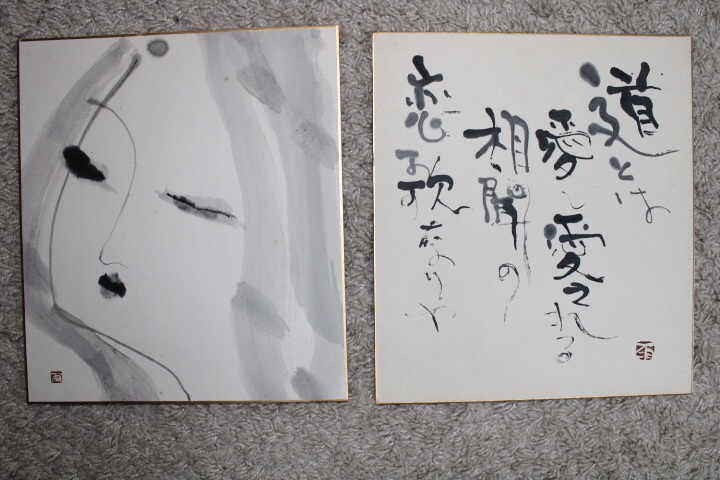 道とは
愛し愛される
相聞の
恋歌なりや